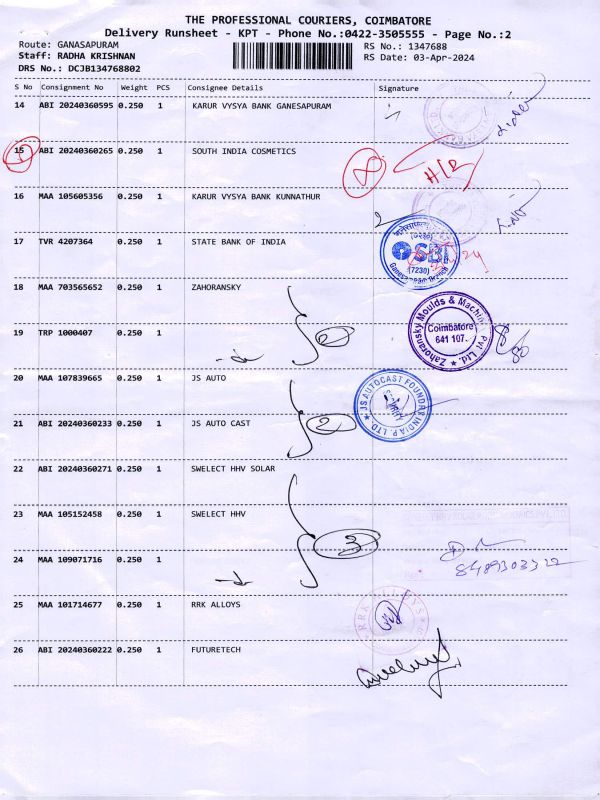 THE PROFESSIONAL COURIERS, COIMBATORE
Delivery Runsheet - KPT - Phone No.:0422-3505555 - Page No.:2
Route: GANASAPURAM RS No.: 1347688
Staff: RADHA KRISHNAN RS Date: 03-Apr-2024
DRS No.: DCJB134768802
S No Consignment No Weight PCS Consignee Details Signature
14 ABI 20240360595 0.250 1 KARUR VYSYA BANK GANESAPURAM
15 ABI 20240360265 0.250 1 SOUTH INDIA COSMETICS
16 MAA 105605356 0.250 1 KARUR VYSYA BANK KUNNATHUR
2
17 TVR 4207364 0.250 1 STATE BANK OF INDIA
SBI
(7230)
18 MAA 703565652 0.250 1 ZAHORANSKY
Zahoransky Moulds & Machines Pvt. Ltd.
Coimbatore
641 107.
19 TRP 1000407 0.250 1
2
20 MAA 107839665 0.250 1 JS AUTO
JS AUTOCAST FOUNDRY INDIA P. LTD
21 ABI 20240360233 0.250 1 JS AUTO CAST
2
22 ABI 20240360271 0.250 1 SWELECT HHV SOLAR
23 MAA 105152458 0.250 1 SWELECT HHV
3
24 MAA 109071716 0.250 1
8489303322
25 MAA 101714677 0.250 1 RRK ALLOYS
RRK ALLOYS
26 ABI 20240360222 0.250 1 FUTURETECH